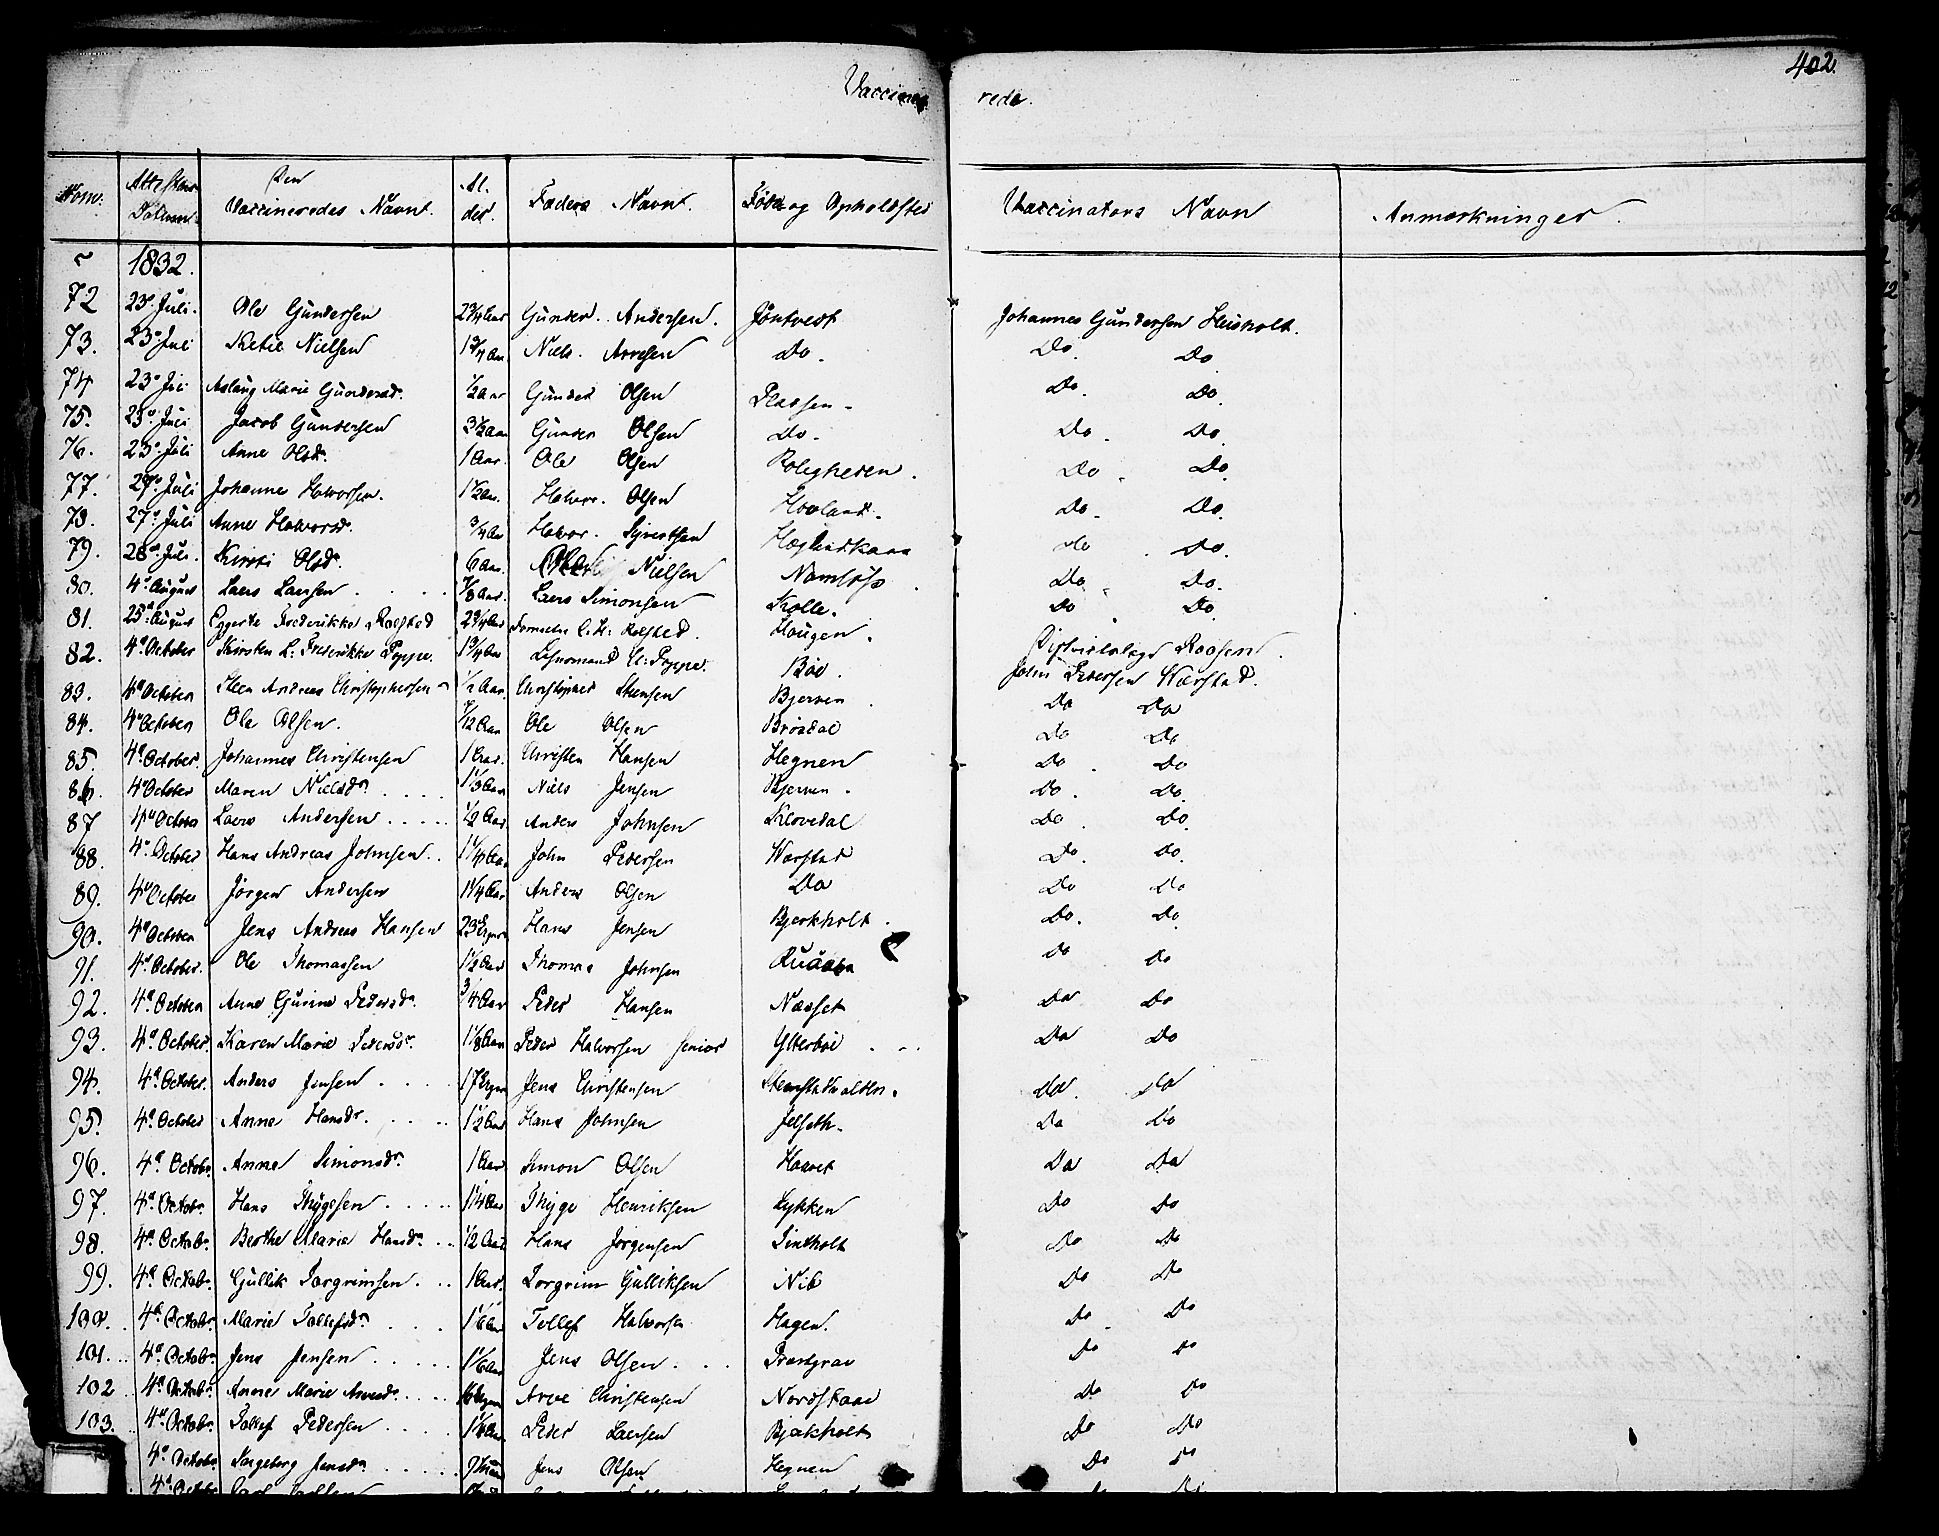 402.
Vaccine rede.
Nom. Attestens Datum. Den Vaccineredes Navn. Al. der. Faders Navn. Føde og Opholdsted Vaccinators Navn Anmærkninger.
1832.
72 23d Juli. Ole Gundersen 2 3/4 Aar Gunder Andersen. Jøntvedt Johannes Gundersen Heisholt.
73. 23d Juli Ketil Nielsen 1 3/4 Aar Niels Arvesen Do. Do. Do.
74 23d Juli Aslaug Marie Gundersdr. 1/2 Aar Gunder Olsen Pladsen. Do. Do.
75. 23d Juli Jacob Gundersen 3 1/2 Aar Gunder Olsen Do. Do. Do.
76. 23d Juli Anne Olsdr. 1 Aar. Ole Olsen Roligheden. Do. Do.
77. 27d Juli Johanne Halvorsen. 1 1/2 Aar. Halvor Olsen Hovland. Do. Do.
78. 27d Juli Anne Halvorsdr. 3/4 Aar Halvor Do. Do.
79. 28d Juli. Kirsti Olsdr. 6 Aar. Nielsen Namløs. Do. Do.
80. 4d August Laers Larsen Aar. Laers Simonsen Kolle. Do. Do.
81. 25d August Frederikke Rolfsted 2 3/4 Aar C. H. Rolfsted. Haugen.
82. 4d October Kirsten L. Frederikke Poppe. 1 3/4 Aar C. Poppe. Bøe. John Pedersen Wærstad.
83. 4d October Steen Andreas Christophersen 1/2 Aar Christopher Steensen Bjerven. Do Do
84. 4d October Ole Olsen. Aar Ole Olsen Brosdal Do Do.
85. 4d October. Johannes Christensen 1 Aar. Christen Hansen Hegnen Do. Do
86. 4d October Maren Nielsdr. 1 1/3 Aar Niels Jensen Bjerven. Do. Do.
87 4d October Laers Andersen 1/2 Aar. Anders Johnsen Klovedal Do Do.
88. 4d October Hans Andreas Johnsen 1 1/4 Aar John Pedersen Wærstad Do. Do.
89. 4d October Jørgen Andersen 1 1/4 Aar Anders Olsen Do Do Do
90. 4d October Jens Andreas Hansen 23 Uger Hans Jensen Bjerkholt. Do. Do.
91. 4d October. Ole Thomassen 1 1/2 Aar Thomas Johnsen Do Do
92. 4d October Anne Gurine Pedersdr. 3/4 Aar Peder Hansen Næsset Do Do
93. 4d October. Karen Marie Pedersdr. 1 1/8 Aar Peder Halvorsen senior Ytterbøe Do Do
94. 4d October. Anders Jensen 17 Uger Jens Christensen Do. Do
95. 4d October Anne Hansdr. 1 1/2 Aar Hans Johnsen Jelseth. Do Do
96. 4d Octobr Anne Simonsdr. 1 Aar Simon Olsen Haavet Do Do
97. 4d Octobr. Hans Thygesen 1 1/4 Aar Thyge Henriksen Lykken Do Do
98. 4d Octobr. Berthe Marie Hansdr. 1/2 Aar Hans Jørgensen Sintholt Do Do
99. 4d Octobr. Gullik Torgrimsen 1 Aar. Torgrim Gulliksen Nib Do Do
100. 4d Octobr. Marie Tollefsdr. 1 1/6 Aar Tollef Halvorsen Hagen. Do Do
101. 4d Octobr Jens Jensen 1 1/6 Aar Jens Olsen Præstgrav Do Do
102 4d Octobr. Anne Marie Arvesdr. 16 Uger Arve Christensen Nordskaae Do Do
103. 4d Octobr. Tollef Pedersen 1 1/6 Aar Peder Laersen Bjerkholt Do Do
4d Octobr Ingeborg Jensdr. Jens Olsen Hegnen Do
4d Octobr